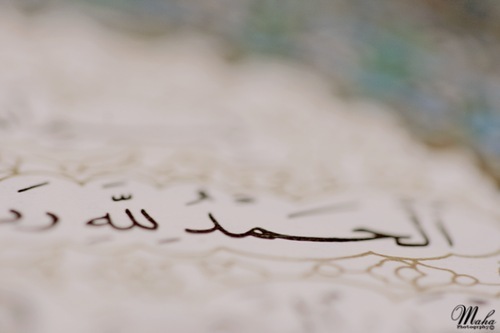 الحمد لله ر
Maha
Photography©